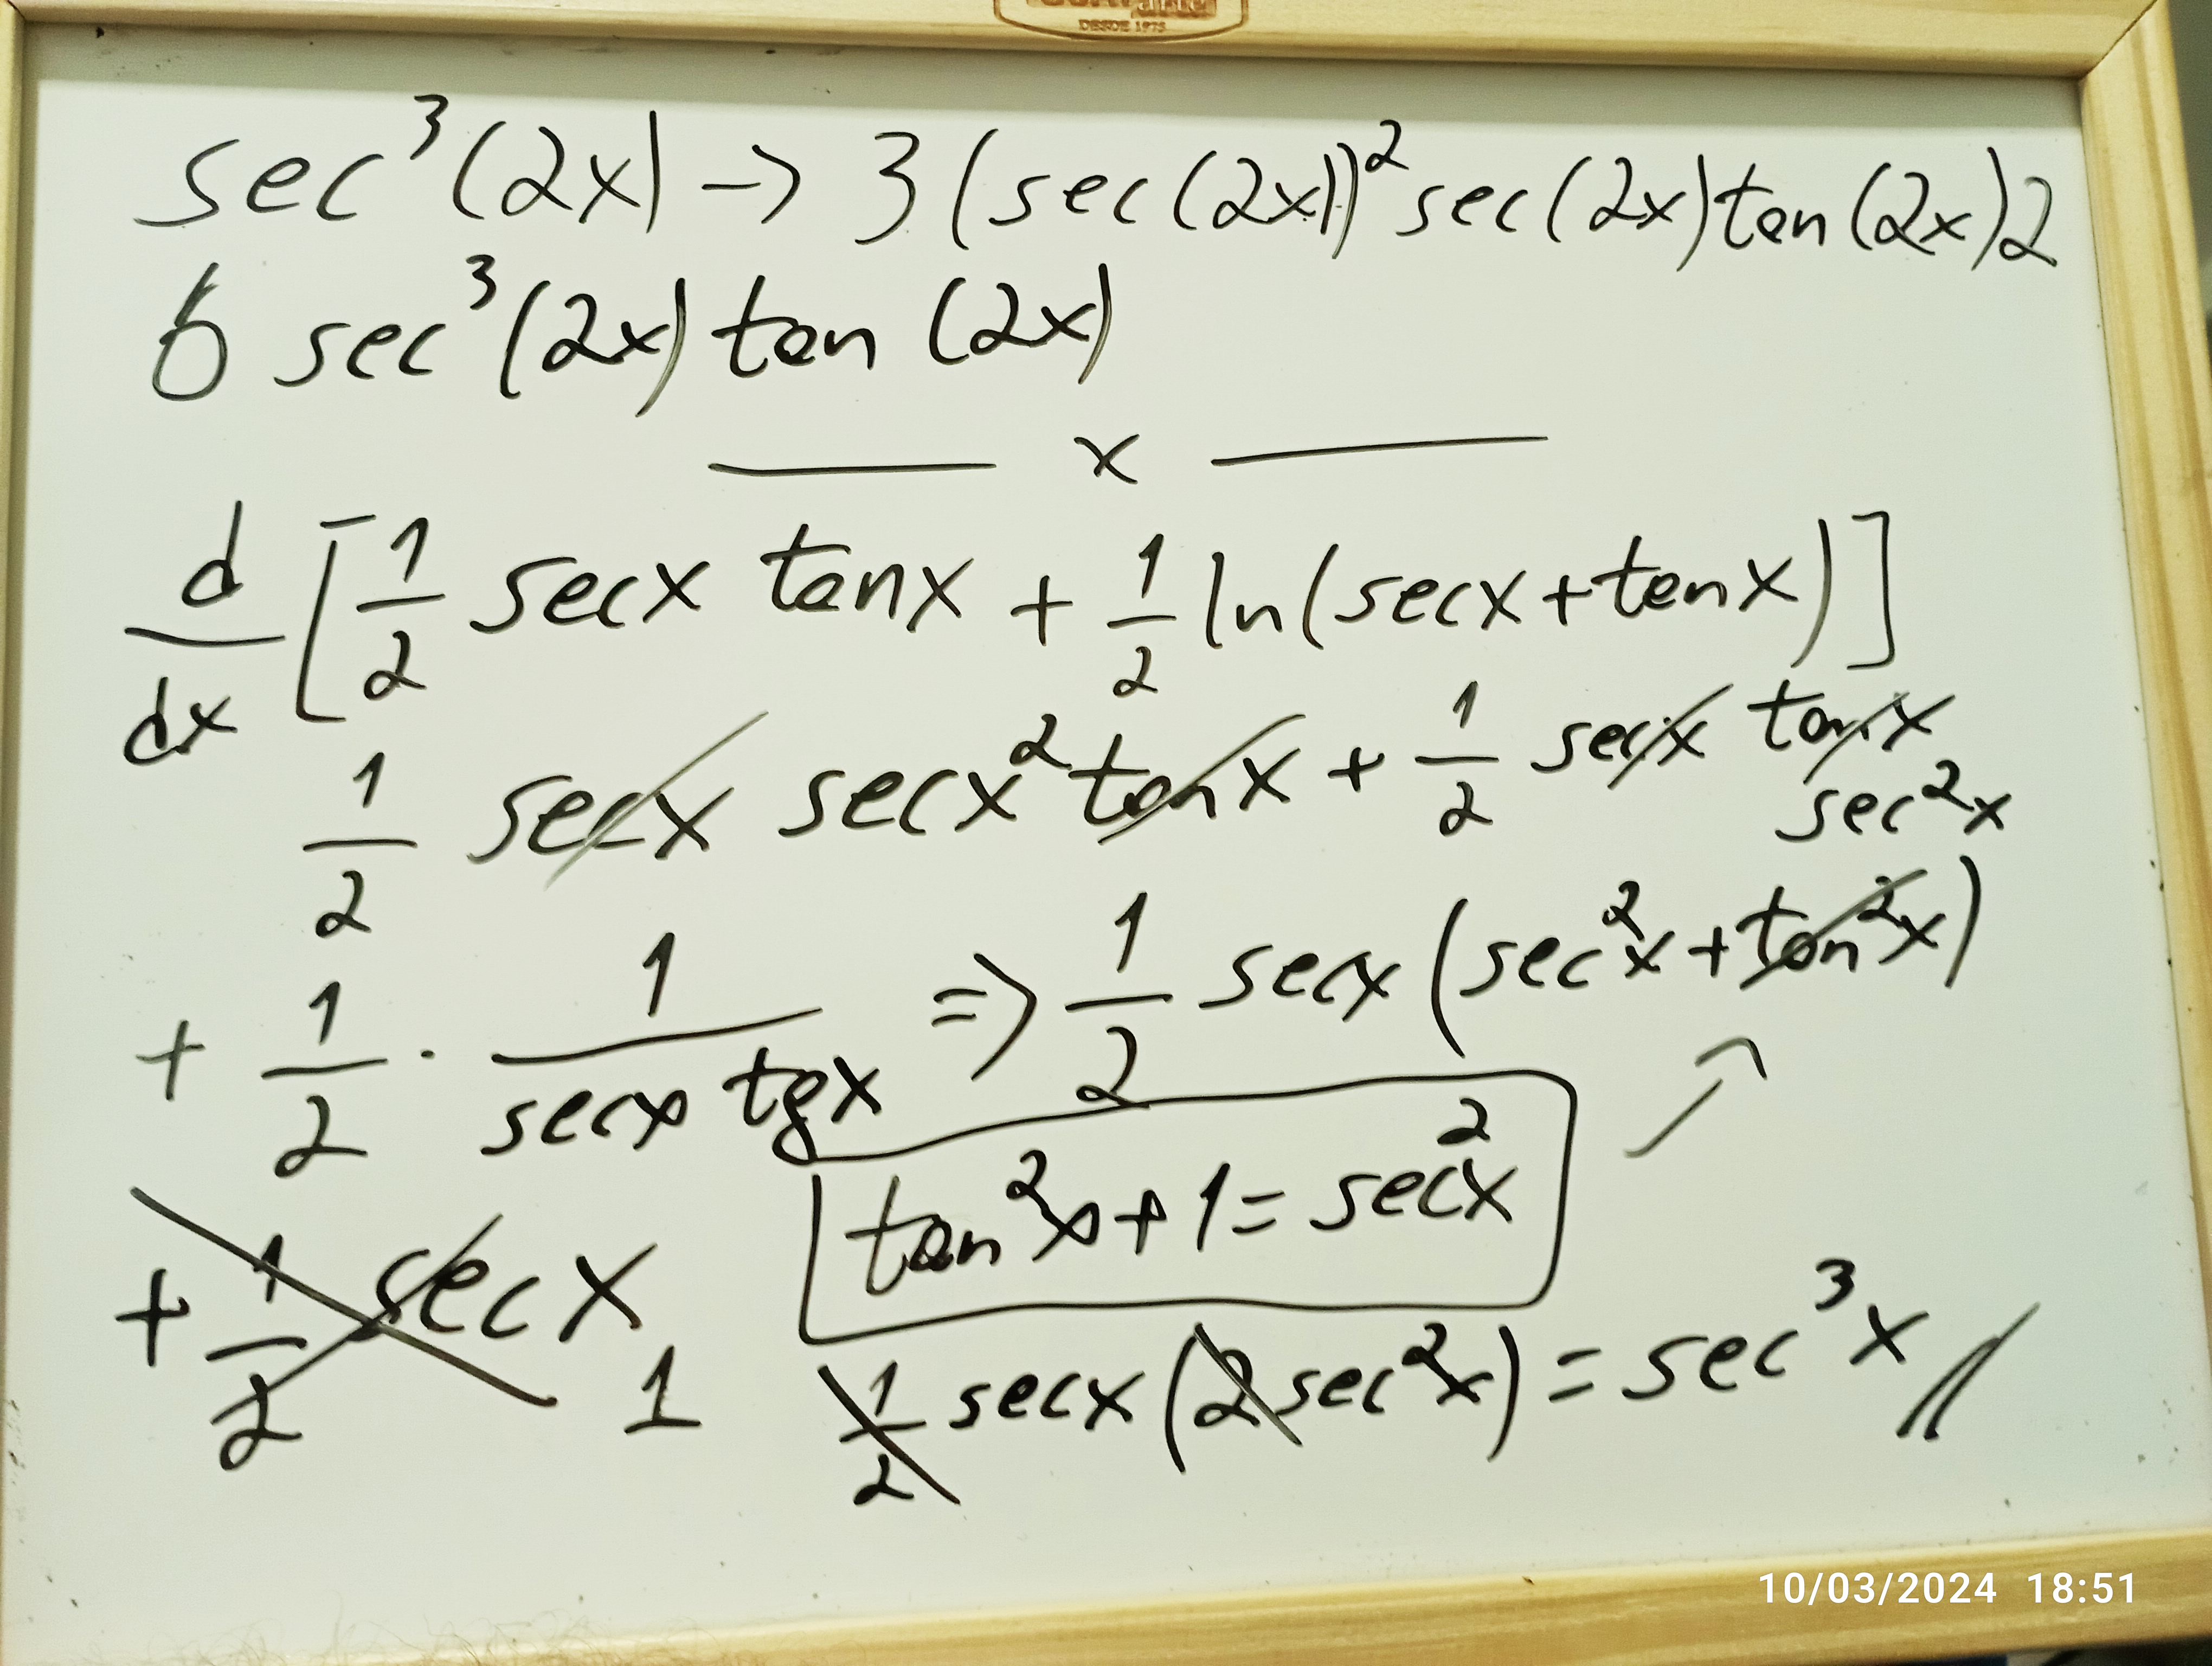 DESDE 1975
sec³(2x) -> 3 (sec(2x))² sec(2x) tan(2x)2
6 sec³(2x) tan (2x)
——— x ———
d/dx [1/2 secx tanx + 1/2 ln(secx + tanx)]
1/2 secx secx² tanx + 1/2 secx tanx
sec²x
+ 1/2 · 1/(secx tgx) => 1/2 secx (sec²x + tan²x)
tan²x + 1 = sec²x
+ 1/2 secx
1
1/2 secx (2 sec²x) = sec³x //
10/03/2024 18:51